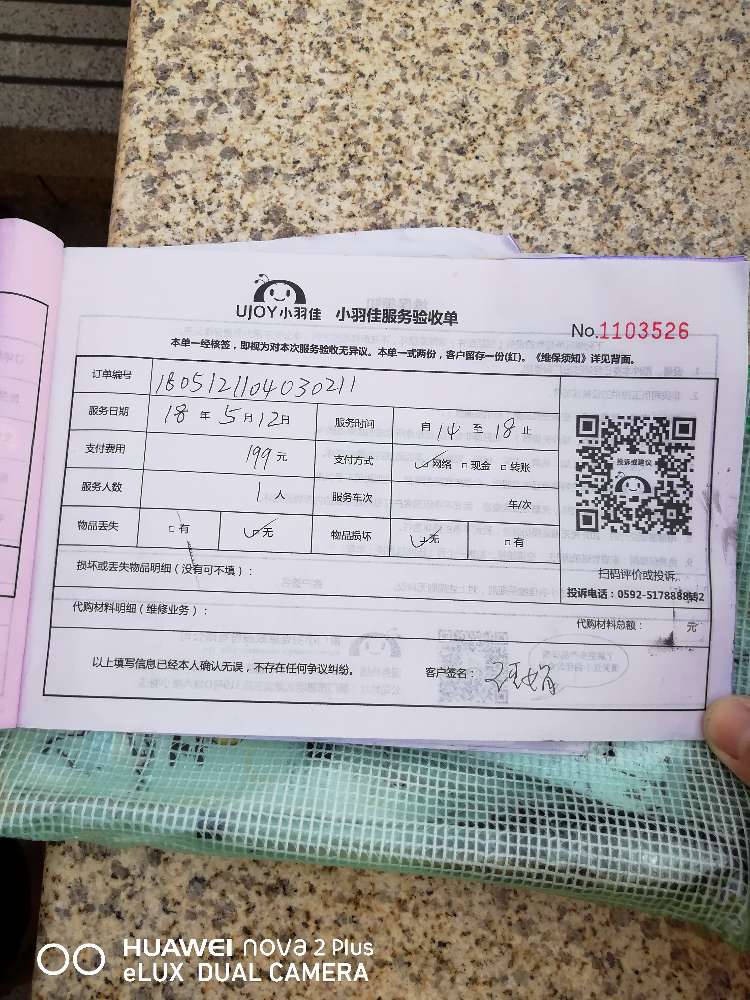 UJOY小羽佳 小羽佳服务验收单
No.1103526
本单一经核签，即视为对本次服务验收无异议。本单一式两份，客户留存一份(红)。《维保须知》详见背面。
订单编号 1805121104030211
服务日期 18 年 5 月 12 日 服务时间 自 14 至 18 止
支付费用 199 元 支付方式 ✓网络 □现金 □转账
服务人数 1 人 服务车次 车/次
物品丢失 □有 ✓无 物品损坏 ✓无 □有
投诉或建议
扫码评价或投诉
投诉电话：0592-5178888转2
损坏或丢失物品明细（没有可不填）：
代购材料明细（维修业务）：
代购材料总额： 元
以上填写信息已经本人确认无误，不存在任何争议纠纷。 客户签名：
HUAWEI nova 2 Plus
eLUX DUAL CAMERA